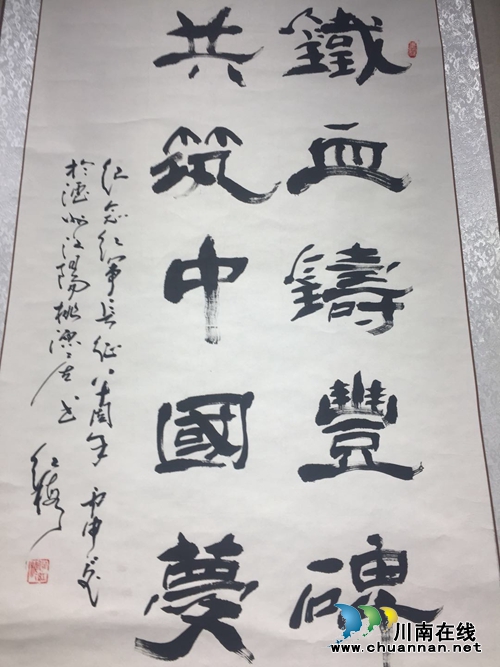 鐵血鑄豐碑
共筑中國夢
纪念红军长征八十周年 丙申茂
於酒城江陽桃源居 书
红梅
川南在线
www.chuannan.net